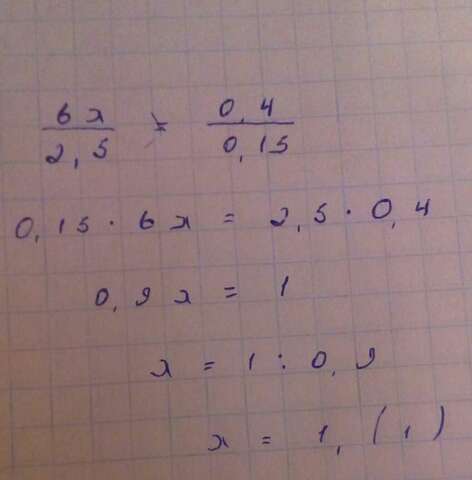 6x/2,5 = 0,4/0,15
0,15 · 6x = 2,5 · 0,4
0,9x = 1
x = 1 : 0,9
x = 1,(1)